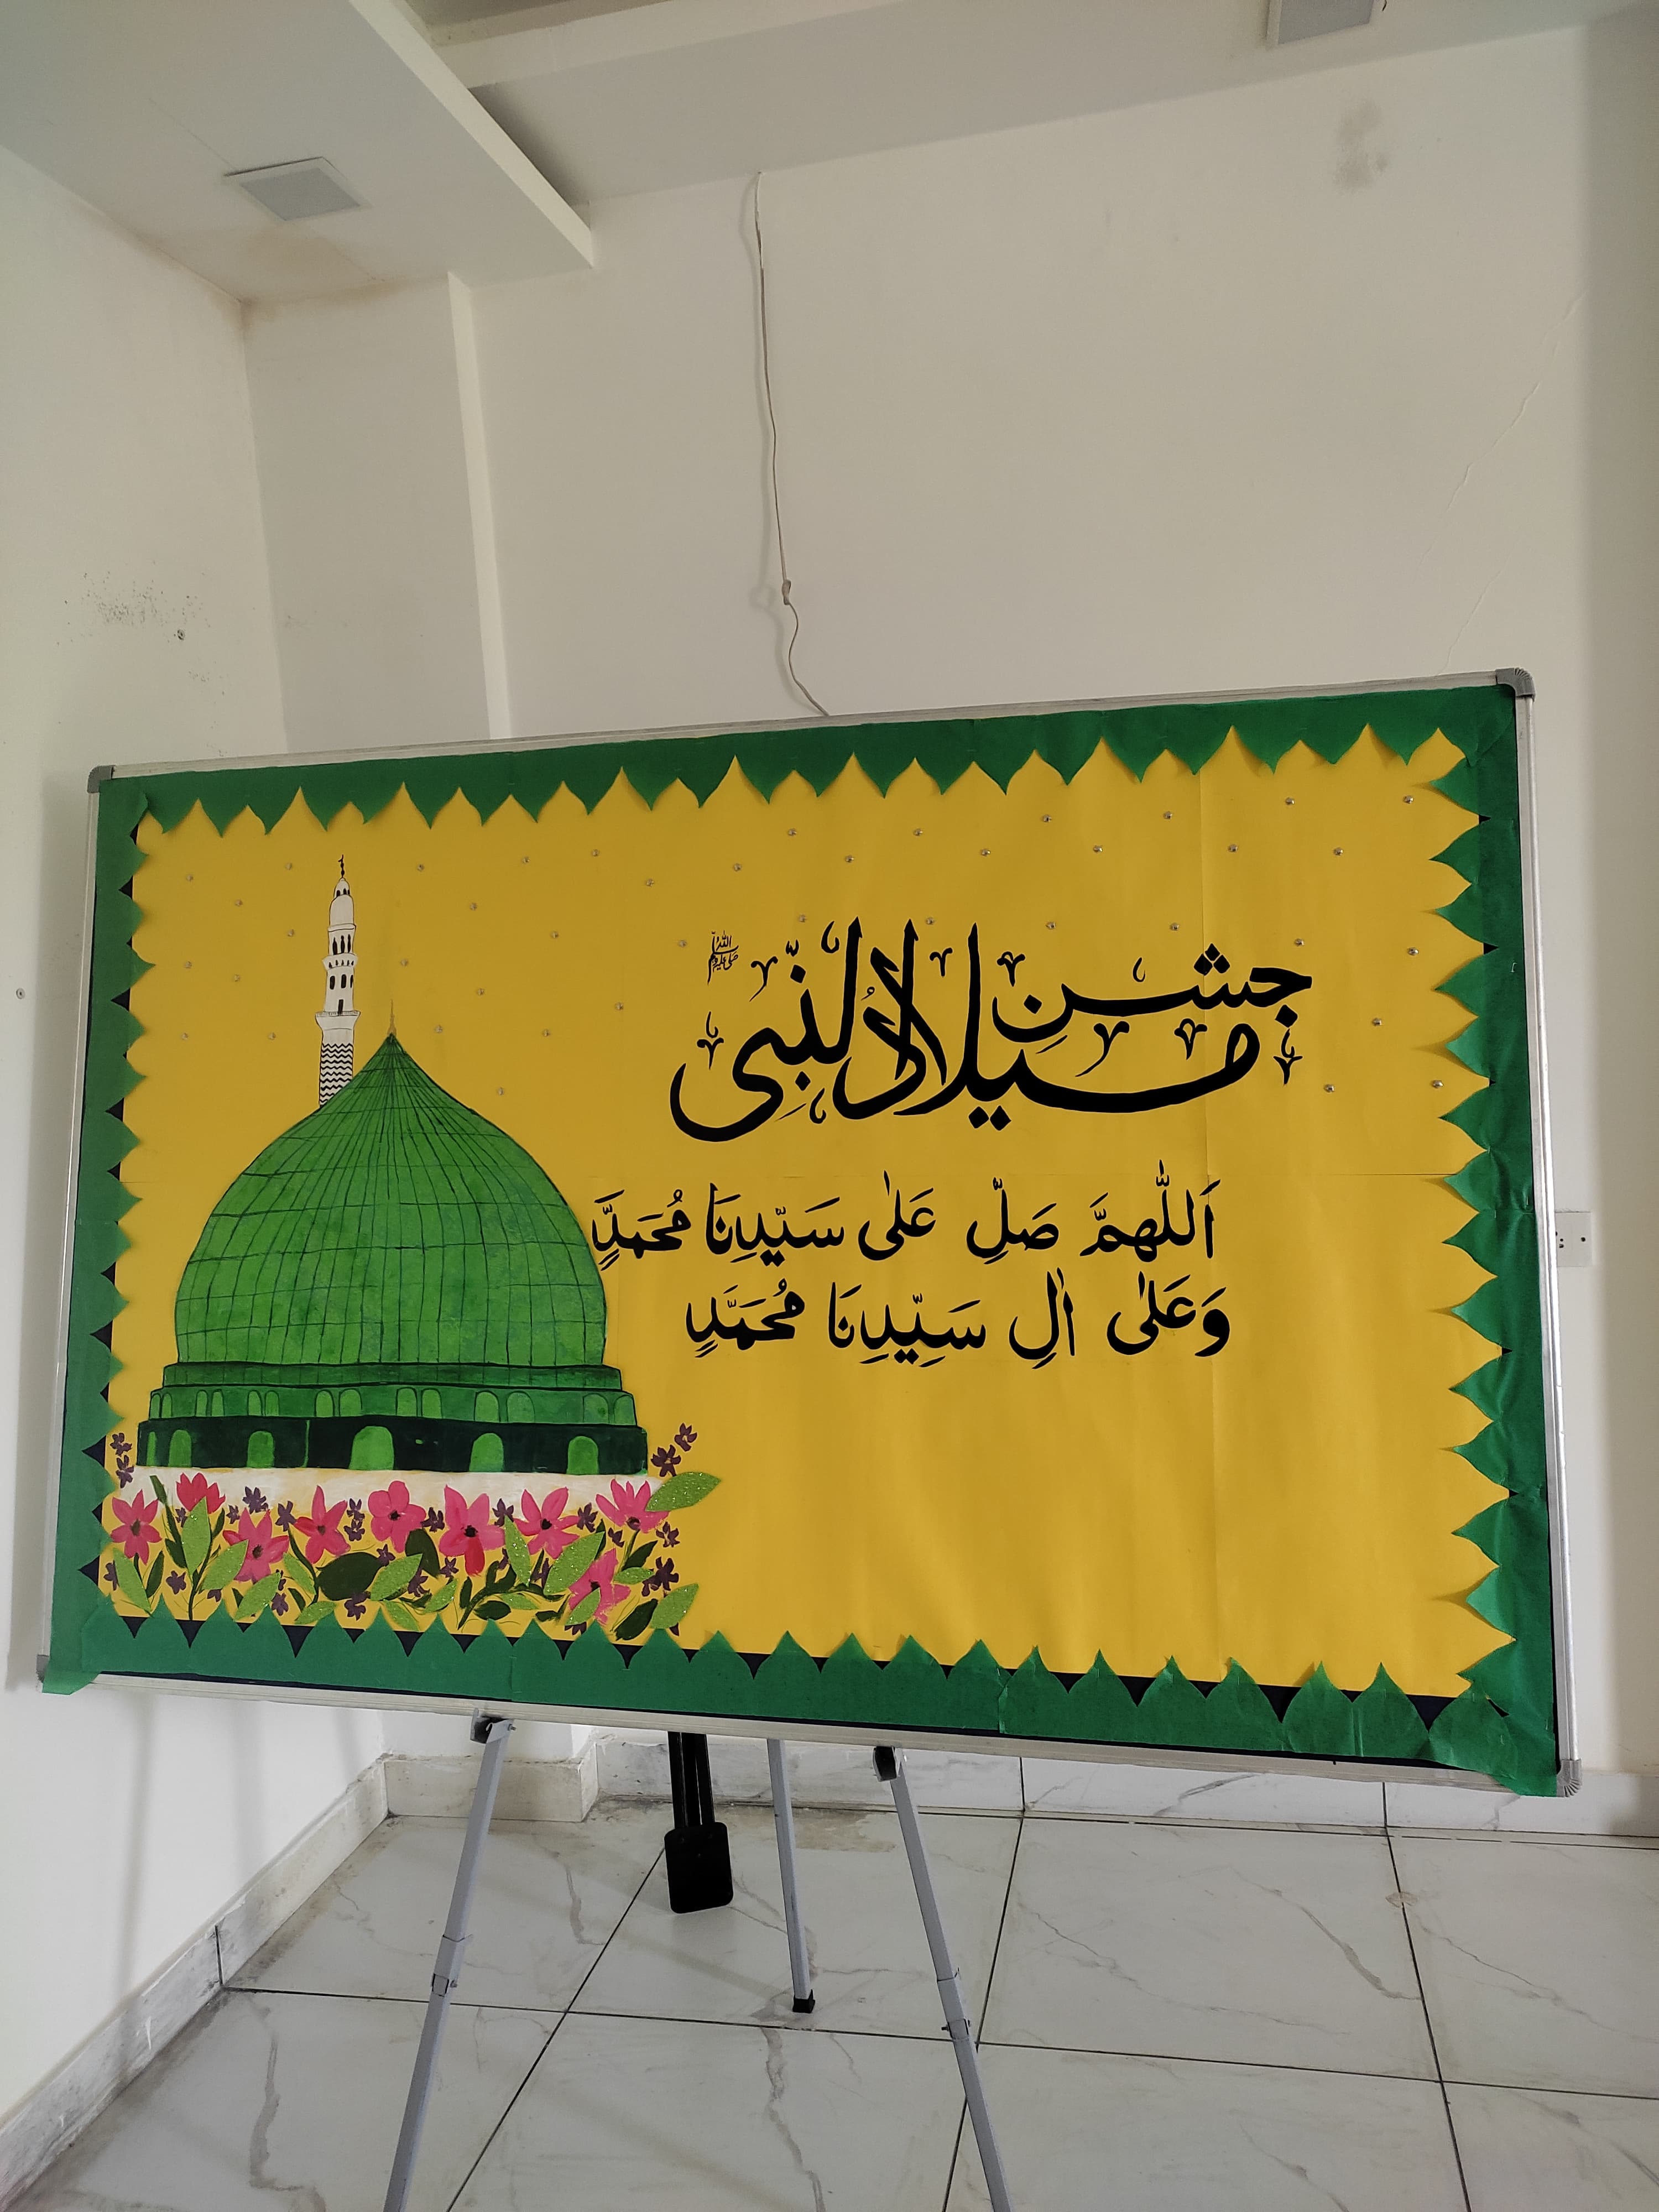 جشنِ
میلادُ النبی ﷺ
اَللّٰھمَّ صَلِّ عَلٰی سَیّدِنَا مُحَمَّدٍ
وَعَلٰی اٰلِ سَیِّدِنَا مُحَمَّدٍ